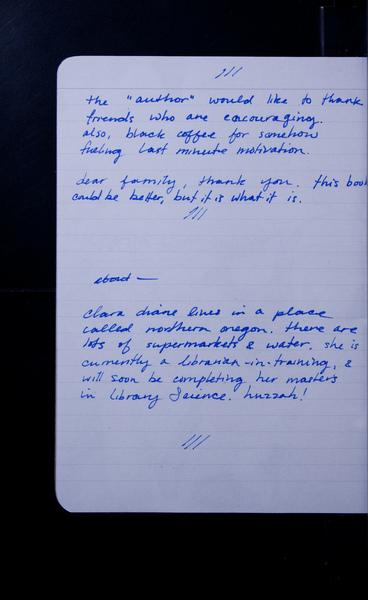 ///
the "author" would like to thank
friends who are encouraging.
also, black coffee for somehow
fueling last minute motivation.
dear family, thank you. this book
could be better, but it is what it is.
///
about —
clara diane lives in a place
called northern oregon. there are
lots of supermarkets & water. she is
currently a librarian-in-training, &
will soon be completing her masters
in library science. huzzah!
///